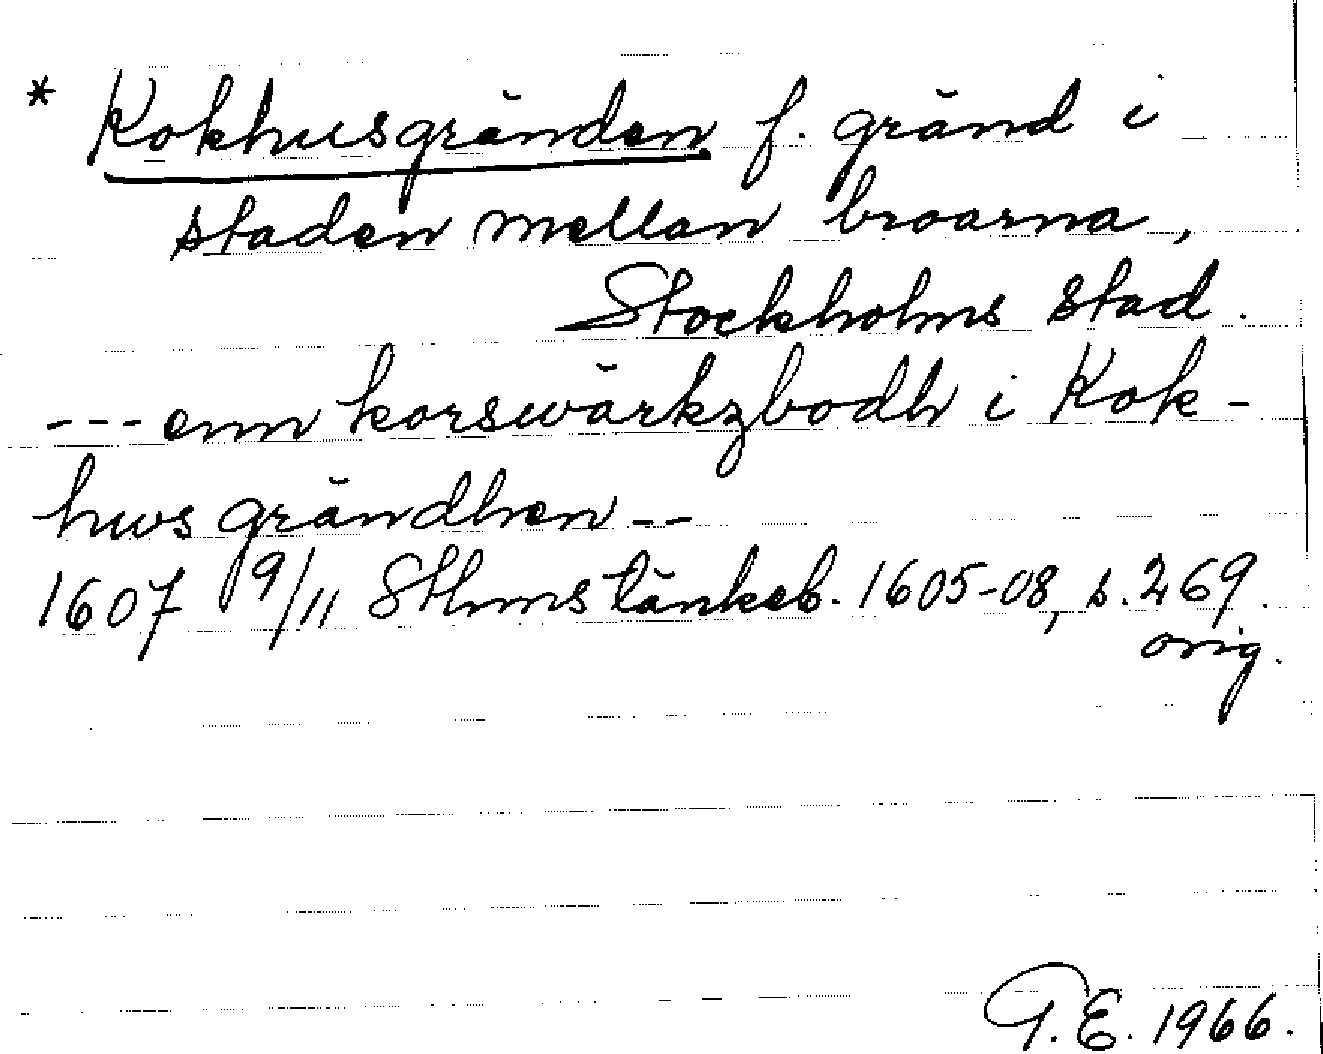 * Kokhusgränden f. gränd i
staden mellan broarna,
Stockholms stad.
--- enn korswärkzbodh i Kok-
hws grändhen --
1607 19/11 Sthms tänkeb. 1605-08, s. 269.
orig.
G.E. 1966.